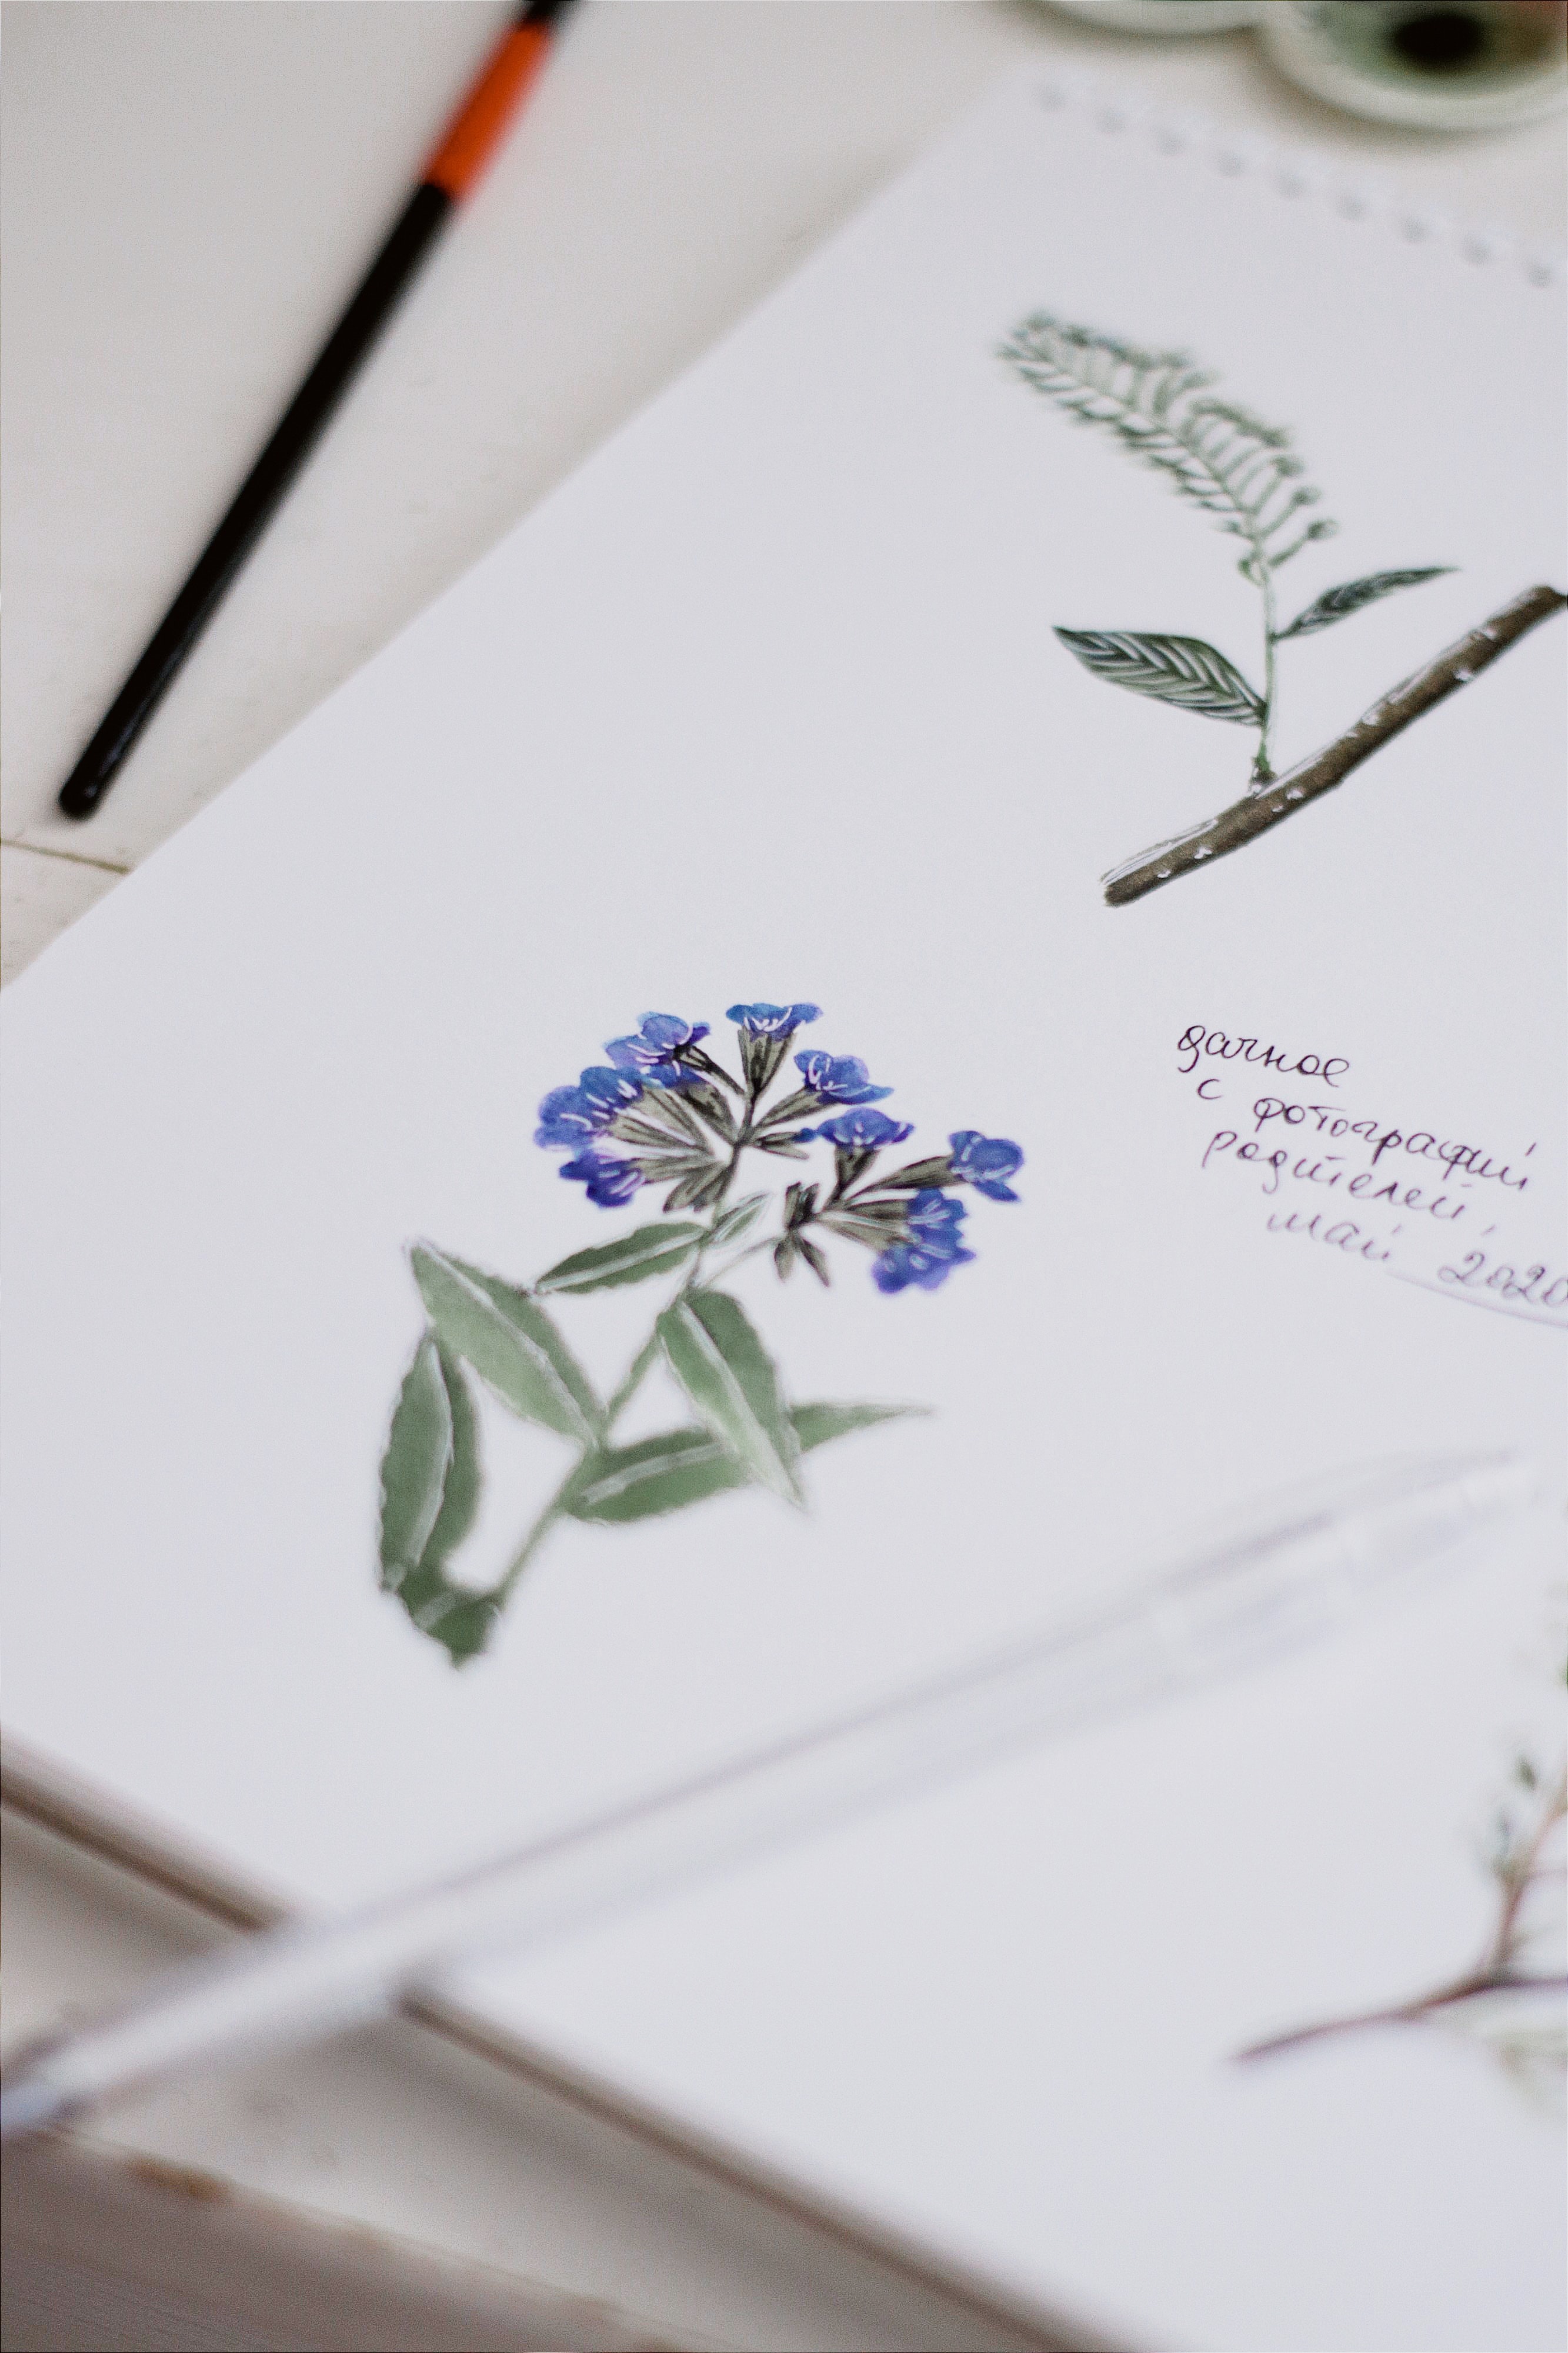 дачное
с фотографий
родителей,
май 2020